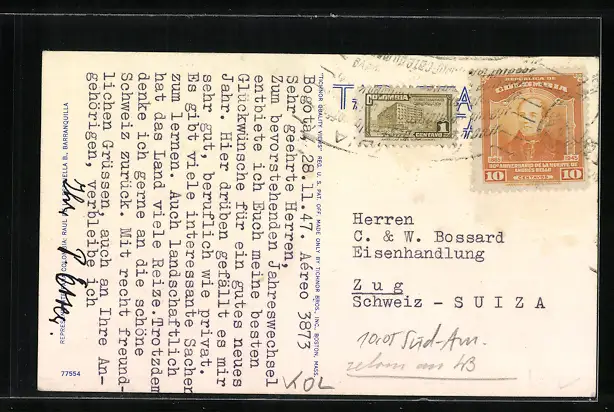 Bogota, 28.11.47. Aéreo 3873
Sehr geehrte Herren,
Zum bevorstehenden Jahreswechsel
entbiete ich Euch meine besten
Glückwünsche für ein gutes neues
Jahr. Hier drüben gefällt es mir
sehr gut, beruflich wie privat.
Es gibt viele interessante Sachen
zum lernen. Auch landschaftlich
hat das Land viele Reize. Trotzdem
denke ich gerne an die schöne
Schweiz zurück. Mit recht freund-
lichen Grüssen, auch an Ihre An-
gehörigen, verbleibe ich
Ihr
TICHNOR QUALITY VIEWS" REG. U. S. PAT. OFF. MADE ONLY BY TICHNOR BROS., INC., BOSTON, MASS.
ELLA B., BARRANQUILLA
77554
COLOMBIA
1
CENTAVO
REPUBLICA DE
COLOMBIA
1865 1946
80º ANIVERSARIO DE LA MUERTE DE
ANDRES BELLO
10 CENTAVOS 10
Herren
C. & W. Bossard
Eisenhandlung
Zug
Schweiz - SUIZA
KOL